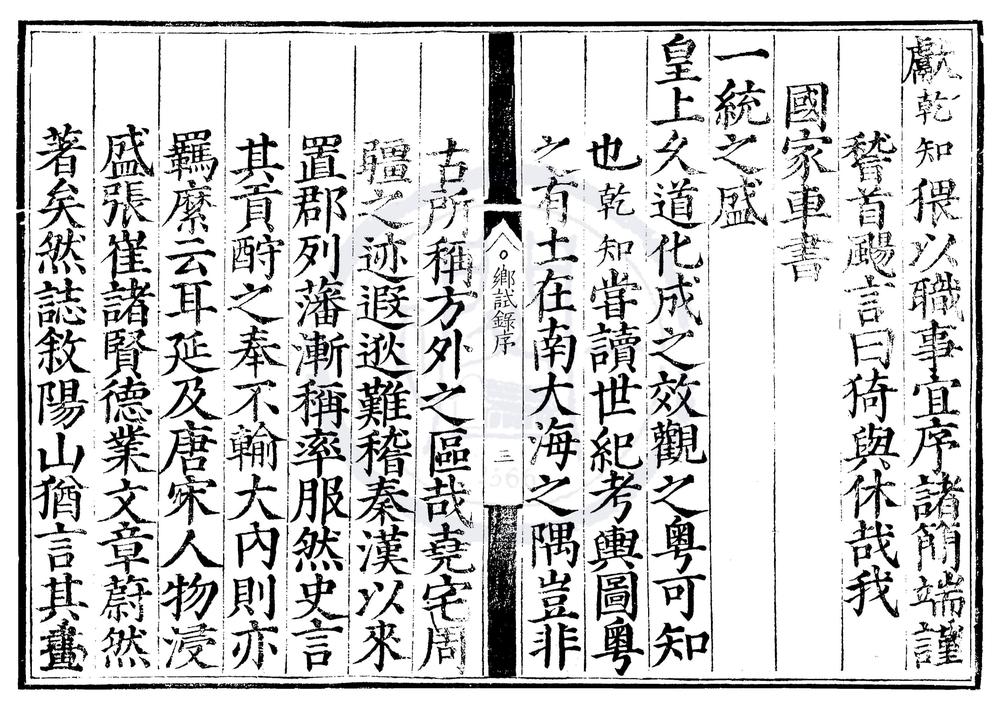 獻乾知猥以職事宜序諸簡端謹
稽首颺言曰猗與休哉我
國家車書
一統之盛
皇上久道化成之效觀之粵可知
也乾知嘗讀世紀考輿圖粵
之有土在南大海之隅豈非
鄉試錄序
三
古所稱方外之區哉堯宅周
疆之迹遐逖難稽秦漢以來
置郡列藩漸稱率服然史言
其貢酎之奉不輸大內則亦
羈縻云耳延及唐宋人物浸
盛張崔諸賢德業文章蔚然
著矣然誌敘陽山猶言其畫